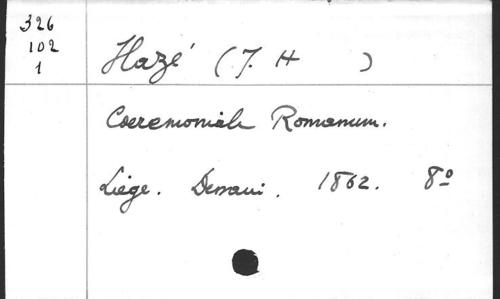 326
102
1
Hazé (J. H )
Coeremoniale Romanum.
Liége. Dessain. 1862. 8º